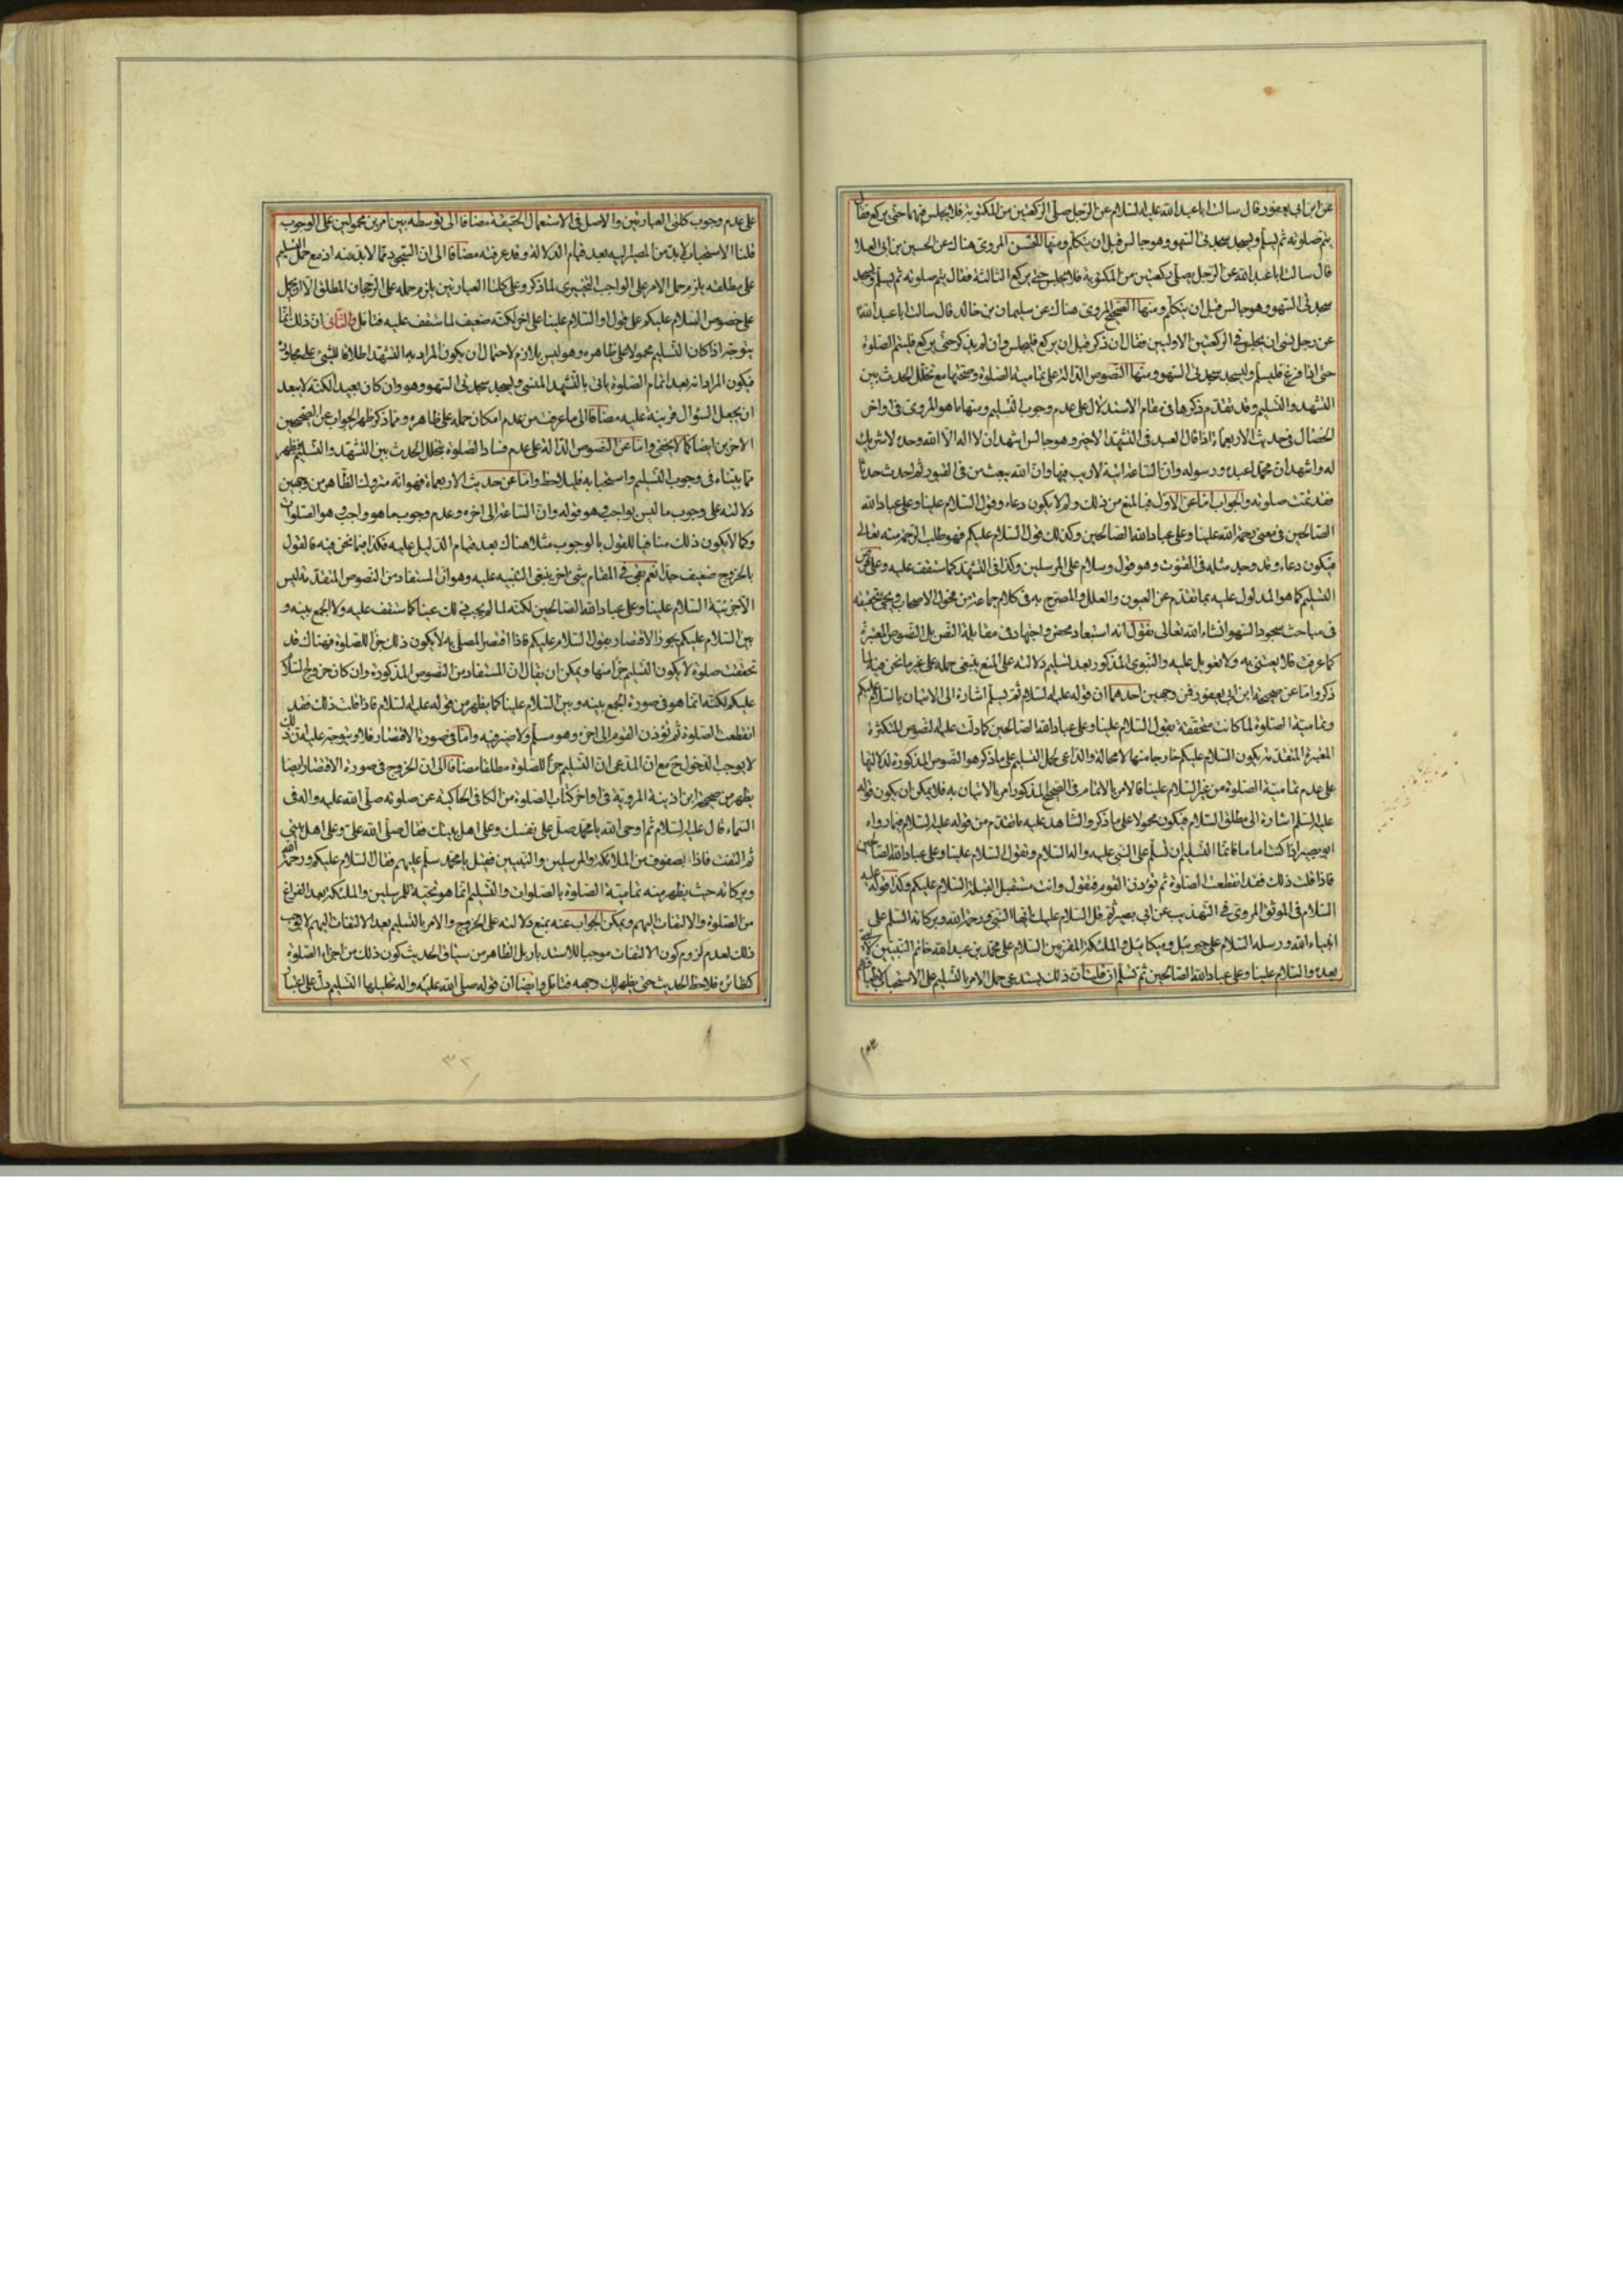 عن ابن ابى يعفور قال سالت ابا عبد الله عليه السلام عن الرجل صلى الركعتين من المكتوبة فلا يجلس فيهما حتى يركع فقال
يتم صلوته ثم يسلم ويسجد سجدتى السهو وهو جالس قبل ان يتكلم ومنها الحسن المروى هناك عن الحسين بن ابى العلا
قال سالت ابا عبد الله عن الرجل يصلى ركعتين من المكتوبة فلا يجلس حتى يركع الثالثة فقال يتم صلوته ثم يسلم ويسجد
سجدتى السهو وهو جالس قبل ان يتكلم ومنها الصحيح المروى هناك عن سليمان بن خالد قال سالت ابا عبد الله
عن رجل نسى ان يجلس فى الركعتين الاوليين فقال ان ذكر قبل ان يركع فليجلس وان لم يذكر حتى يركع فليتم الصلوة
حتى اذا فرغ فليسلم وليسجد سجدتى السهو ومنها النصوص الدالة على تمامية الصلوة وصحتها مع تخلل الحدث بين
التشهد والتسليم وقد تقدم ذكرها فى مقام الاستدلال على عدم وجوب التسليم ومنها ما هو المروى فى اواخر
الخصال فى حديث الاربعماة اذا قال العبد فى التشهد الاخير وهو جالس اشهد ان لا اله الا الله وحده لا شريك
له واشهد ان محمدا عبده ورسوله وان الساعة اتية لا ريب فيها وان الله يبعث من فى القبور ثم احدث حدثا
فقد تمت صلوته والجواب اما عن الاول فبالمنع من ذلك ولم لا يكون دعاء وقول السلام علينا وعلى عباد الله
الصالحين فى معنى رحمة الله علينا وعلى عباد الله الصالحين وكذلك قول السلام عليكم فهو طلب الرحمة منه تعالى
فيكون دعاء وقد وجد مثله فى القنوت وهو قول وسلام على المرسلين وكذا فى التشهد كما ستقف عليه وعلى
التسليم كما هو المدلول عليه بما تقدم عن العيون والعلل والمصرح به فى كلام جماعة من فحول الاصحاب ويجئ تحقيقه
فى مباحث سجود السهو انشاء الله تعالى نقول انه استبعاد محض واجتهاد فى مقابلة النص بل النصوص المعتبرة
كما عرفت فلا يعتنى به ولا تعويل عليه والنبوى المذكور بعد تسليم دلالته على المنع ينبغى حمله على غير ما نحن فيه لما
ذكر واما عن صحيحة ابن ابى يعفور فمن وجهين احدهما ان قوله عليه السلام ثم يسلم اشارة الى الاتيان بالسلام عليكم
وتمامية الصلوة لما كانت متحققة بقول السلام علينا وعلى عباد الله الصالحين كما دلت عليه النصوص المتكثرة
المعتبرة المتقدمة يكون السلام عليكم خارجا منها لا محالة والداعى لحمل التسليم على ما ذكر هو النصوص المذكورة لدلالتها
على عدم تمامية الصلوة من غير السلام علينا فالامر بالاتمام فى الصحيح المذكور امر بالاتيان به فلا يمكن ان يكون قوله
عليه السلم اشارة الى مطلق السلام فيكون محمولا على ما ذكر والشاهد عليه ما تقدم من قوله عليه السلام فيما رواه
ابو بصير اذا كنت اماما فانما التسليم ان تسلم على النبى عليه واله السلام وتقول السلام علينا وعلى عباد الله الصالحين
فاذا قلت ذلك فقد انقطعت الصلوة ثم تؤذن القوم فتقول وانت مستقبل القبلة السلام عليكم وكذا قوله عليه
السلام فى الموثق المروى فى التهذيب عن ابى بصير ثم قل السلام عليك ايها النبى ورحمة الله وبركاته السلم على
انبياء الله ورسله السلام على جبرئيل وميكائيل والملئكة المقربين السلام على محمد بن عبد الله خاتم النبيين لا نبى
بعده والسلام علينا وعلى عباد الله الصالحين ثم تسلم ان قلت ان ذلك يستدعى حمل الامر بالتسليم على الاستحباب
على عدم وجوب كلتى العبارتين والاصل فى الاستعمال الحقيقة مضافا الى توسطه بين امرين محمولين على الوجوب
قلنا الاستحباب لا بد من المصير اليه بعد قيام الدلالة وقد عرفته مضافا الى ان التجوز مما لا بد منه اذ مع حمل التسليم
على مطلقه يلزم حمل الامر على الواجب التخييرى لما ذكر وعلى كلتا العبارتين يلزم حمله على الرجحان المطلق الا ان يحمل
على خصوص السلام عليكم على قول او السلام علينا على اخر لكنه ضعيف لما ستقف عليه فتامل والثانى ان ذلك انما
يتوجه اذا كان التسليم محمولا على ظاهره وهو ليس بلازم لاحتمال ان يكون المراد به التشهد اطلاقا للشئ على مجاوره
فيكون المراد انه بعد اتمام الصلوة ياتى بالتشهد المنسى ويسجد سجدتى السهو وهو وان كان بعيدا لكنه لا يبعد
ان يجعل السؤال قرينة عليه مضافا الى ما عرفت من عدم امكان حمله على ظاهره ومما ذكر ظهر الجواب عن الصحيحين
الاخرين ايضا كما لا يخفى واما عن النصوص الدالة على عدم فساد الصلوة بتخلل الحدث بين التشهد والتسليم فظهر
مما بيناه فى وجوب التسليم واستحبابه فليلاحظ واما عن حديث الاربعماة فهو انه متروك الظاهر من وجهين
دلالته على وجوب ما ليس بواجب وهو قوله وان الساعة الى اخره وعدم وجوب ما هو واجب وهو الصلوات
وكما لا يكون ذلك منافيا للقول بالوجوب مثلا هناك بعد قيام الدليل عليه فكذا فيما نحن فيه فالقول
بالخروج ضعيف جدا نعم بقى فى المقام شئ اخر ينبغى التنبيه عليه وهو ان المستفاد من النصوص المتقدمة ليس
الا جزئية السلام علينا وعلى عباد الله الصالحين لكنه لما لم يجب ذلك عينا كما ستقف عليه ولا الجمع بينه و
بين السلام عليكم يجوز الاقتصار بقول السلام عليكم فاذا اقتصر المصلى به لا يكون ذلك جزء للصلوة فهناك قد
تحققت صلوة لا يكون التسليم جزء منها ويمكن ان يقال ان المستفاد من النصوص المذكورة وان كان خروج السلام
عليكم لكنه انما هو فى صورة الجمع بينه وبين السلام علينا كما يظهر من قوله عليه السلام فاذا قلت ذلك فقد
انقطعت الصلوة ثم تؤذن القوم الى اخره وهو مسلم ولا ضير فيه واما فى صورة الاقتصار فلا ويتوجه عليه ان ذلك
لا يوجب الدخول ح مع ان المدعى ان التسليم جزء للصلوة مطلقا مضافا الى ان الخروج فى صورة الاقتصار ايضا
يظهر من صحيحة ابن اذينة المروية فى اواخر كتاب الصلوة من الكافى الحاكية عن صلوته صلى الله عليه واله فى
السماء قال عليه السلام ثم اوحى الله يا محمد صل على نفسك وعلى اهل بيتك فقال صلى الله على وعلى اهل بيتى
ثم التفت فاذا بصفوف من الملائكة والمرسلين والنبيين فقيل يا محمد سلم عليهم فقال السلام عليكم ورحمة الله
وبركاته حيث يظهر منه تمامية الصلوة بالصلوات والتسليم انما هو تحية للمرسلين والملئكة بعد الفراغ
من الصلوة والالتفات اليهم ويمكن الجواب عنه بمنع دلالته على الخروج والامر بالتسليم بعد الالتفات اليهم لا يوجب
ذلك لعدم لزوم كون الالتفات موجبا للاستدبار بل الظاهر من سياق الحديث كون ذلك من اجزاء الصلوة
كنظائره فلاحظ الحديث حتى يظهر لك وجهه فتامل وايضا ان قوله صلى الله عليه واله تحليلها التسليم دل على اعتبار